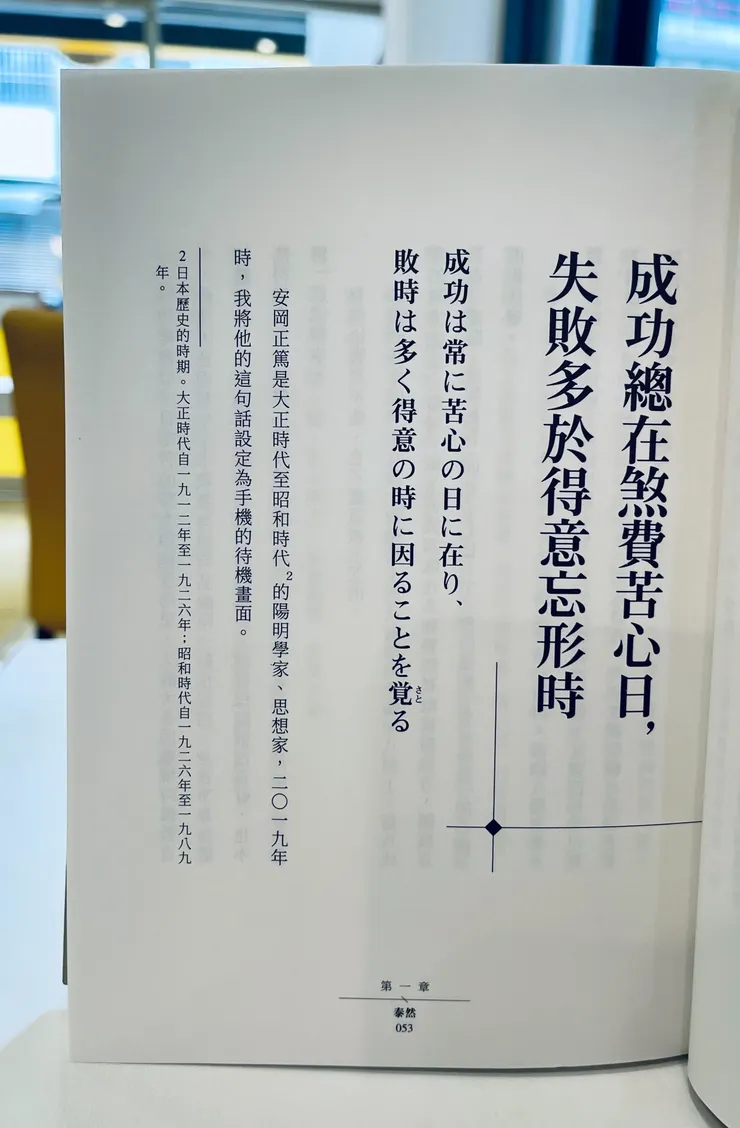 成功總在煞費苦心日,
失敗多於得意忘形時
成功は常に苦心の日に在り、
敗時は多く得意の時に因ることを覚る
さと
安岡正篤是大正時代至昭和時代2的陽明學家、思想家，二〇一九年
時，我將他的這句話設定為手機的待機畫面。
2 日本歷史的時期。大正時代自一九一二年至一九二六年；昭和時代自一九二六年至一九八九
年。
第一章
泰然
053